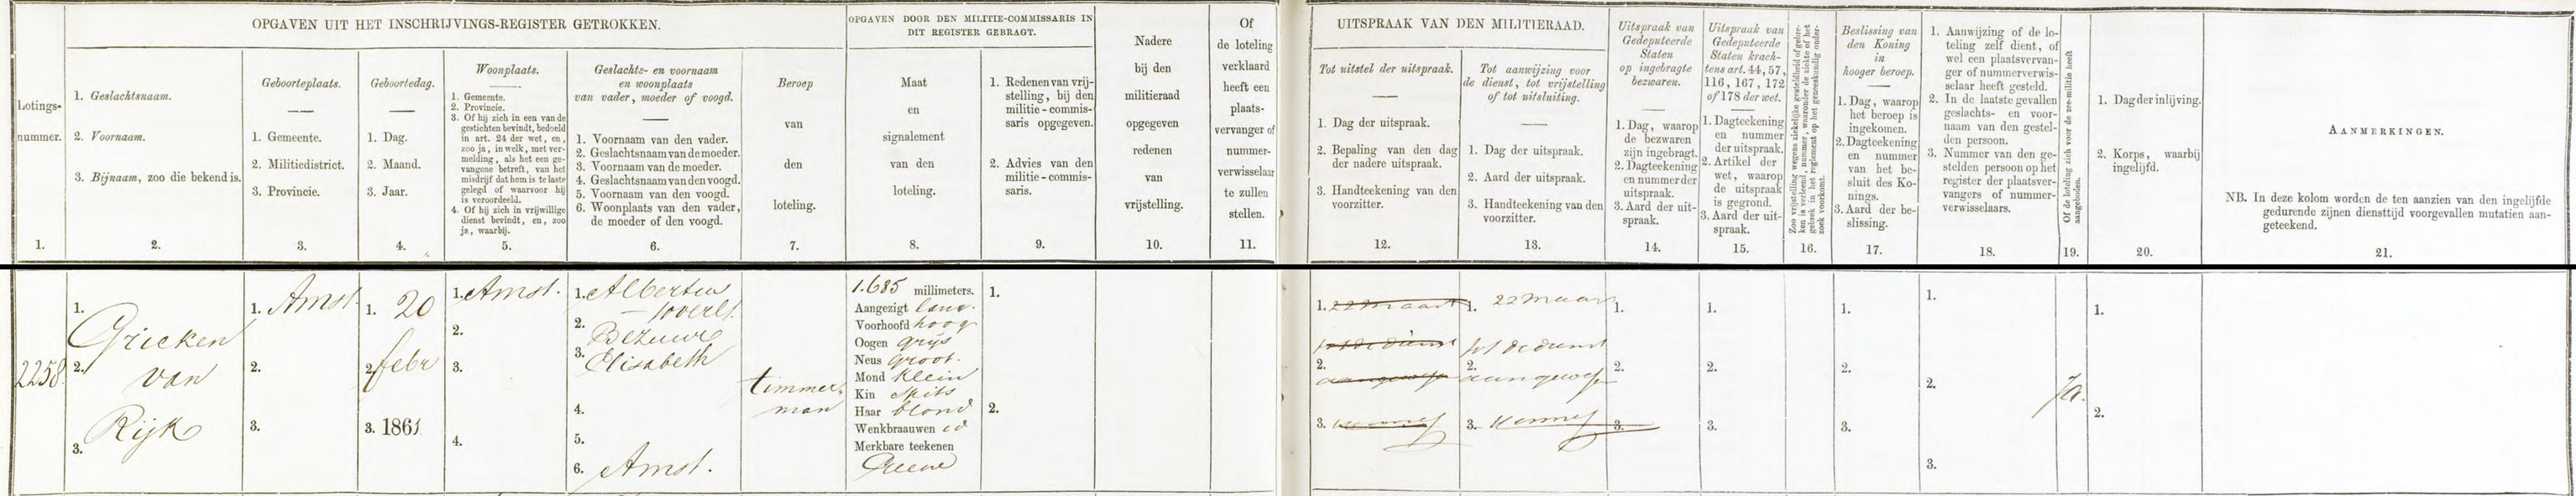 OPGAVEN UIT HET INSCHRIJVINGS-REGISTER GETROKKEN.
OPGAVEN DOOR DEN MILITIE-COMMISSARIS IN
DIT REGISTER GEBRAGT.
Lotings-
nummer.
1.
1. Geslachtsnaam.
2. Voornaam.
3. Bijnaam, zoo die bekend is.
2.
Geboorteplaats.
1. Gemeente.
2. Militiedistrict.
3. Provincie.
3.
Geboortedag.
1. Dag.
2. Maand.
3. Jaar.
4.
Woonplaats.
1. Gemeente.
2. Provincie.
3. Of hij zich in een van de
gestichten bevindt, bedoeld
in art. 24 der wet, en,
zoo ja, in welk, met ver-
melding, als het een ge-
vangene betreft, van het
misdrijf dat hem is te laste
gelegd of waarvoor hij
is veroordeeld.
4. Of hij zich in vrijwillige
dienst bevindt, en, zoo
ja, waarbij.
5.
Geslachts- en voornaam
en woonplaats
van vader, moeder of voogd.
1. Voornaam van den vader.
2. Geslachtsnaam van de moeder.
3. Voornaam van de moeder.
4. Geslachtsnaam van den voogd.
5. Voornaam van den voogd.
6. Woonplaats van den vader,
de moeder of den voogd.
6.
Beroep
van
den
loteling.
7.
Maat
en
signalement
van den
loteling.
8.
1. Redenen van vrij-
stelling, bij den
militie-commis-
saris opgegeven.
2. Advies van den
militie-commis-
saris.
9.
Nadere
bij den
militieraad
opgegeven
redenen
van
vrijstelling.
10.
Of
de loteling
verklaard
heeft een
plaats-
vervanger of
nummer-
verwisselaar
te zullen
stellen.
11.
UITSPRAAK VAN DEN MILITIERAAD.
Tot uitstel der uitspraak.
1. Dag der uitspraak.
2. Bepaling van den dag
der nadere uitspraak.
3. Handteekening van den
voorzitter.
12.
Tot aanwijzing voor
de dienst, tot vrijstelling
of tot uitsluiting.
1. Dag der uitspraak.
2. Aard der uitspraak.
3. Handteekening van den
voorzitter.
13.
Uitspraak van
Gedeputeerde
Staten
op ingebragte
bezwaren.
1. Dag, waarop
de bezwaren
zijn ingebragt.
2. Dagteekening
en nummer der
uitspraak.
3. Aard der uit-
spraak.
14.
Uitspraak van
Gedeputeerde
Staten krach-
tens art. 44, 57,
116, 167, 172
of 178 der wet.
1. Dagteekening
en nummer
der uitspraak.
2. Artikel der
wet, waarop
de uitspraak
is gegrond.
3. Aard der uit-
spraak.
15.
Zoo vrijstelling wegens ziekelijke gesteldheid of gebre-
ken is verleend, nummer, waaronder de ziekte of het
gebrek in het reglement op het geneeskundig onder-
zoek voorkomt.
16.
Beslissing van
den Koning
in
hooger beroep.
1. Dag, waarop
het beroep is
ingekomen.
2. Dagteekening
en nummer
van het be-
sluit des Ko-
nings.
3. Aard der be-
slissing.
17.
1. Aanwijzing of de lo-
teling zelf dient, of
wel een plaatsvervan-
ger of nummerverwis-
selaar heeft gesteld.
2. In de laatste gevallen
geslachts- en voor-
naam van den gestel-
den persoon.
3. Nummer van den ge-
stelden persoon op het
register der plaatsver-
vangers of nummer-
verwisselaars.
18.
Of de loteling zich voor de zee-militie heeft
aangeboden.
19.
1. Dag der inlijving.
2. Korps, waarbij
ingelijfd.
20.
AANMERKINGEN.
NB. In deze kolom worden de ten aanzien van den ingelijfde
gedurende zijnen diensttijd voorgevallen mutatien aan-
geteekend.
21.
2258.
1.
Grieken
2. van
Rijk
3.
1. Amst.
2.
3.
1. 20
2. febr
3. 1861
1. Amst.
2.
3.
4.
1. Albertus
overl.
2. Bezuwe
3. Elisabeth
4.
5.
6. Amst.
timmer-
man
1.685 millimeters.
Aangezigt lang.
Voorhoofd hoog
Oogen grijs
Neus groot.
Mond klein
Kin spits
Haar blond
Wenkbraauwen id
Merkbare teekenen
Geene
1.
2.
1. 22 maart
tot de dienst
2. aangewezen
3.
1. 22 maart
tot de dienst
2. aangewezen
3.
1.
2.
3.
1.
2.
3.
1.
2.
3.
1.
2.
3.
Ja.
1.
2.